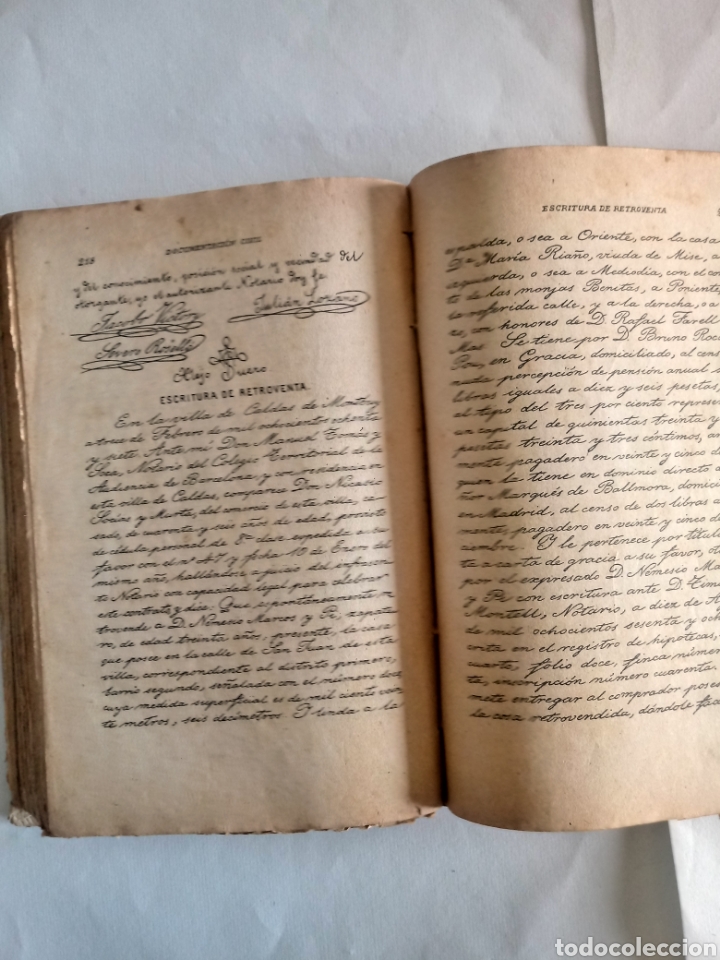 258
DOCUMENTACIÓN CIVIL
y del conocimiento, posición social y vecindad del
otorgante, yo el autorizante Notario doy fe
Jacobo Victory
Julián Lozano
Severo Rosells
Alejo Suero
ESCRITURA DE RETROVENTA.
En la villa de Caldas de Montbuy
a trece de Febrero de mil ochocientos ochenta
y siete Ante mí Don Manuel Tomás y
Sea, Notario del Colegio Territorial de la
Audiencia de Barcelona y con residencia en
esta villa de Caldas, comparece Don Nicasio
Socías y Murta, del comercio de esta villa, ca-
sado, de cuarenta y seis años de edad, provisto
de cédula personal de 8ª clase expedida a su
favor con el nº 47 y fecha 10 de Enero del
mismo año, hallándose a juicio del infrascri-
to Notario con capacidad legal para celebrar
este contrato y dice: Que espontáneamente re-
trovende a D. Nemesio Marcos y Pí, zapate-
ro, de edad treinta años, presente, la casa
que posee en la calle de San Juan de esta
villa, correspondiente al distrito primero,
barrio segundo, señalada con el número doce,
cuya medida superficial es de mil ciento vein-
te metros, seis decímetros Y linda a la
ESCRITURA DE RETROVENTA
espalda, o sea a Oriente, con la casa
Da María Riaño, viuda de Mise, a
izquierda, o sea a Mediodía, con el con
to de las monjas Benitas, a Poniente
la referida calle, y a la derecha, o a
co, con honores de D. Rafael Farell
Mas Se tiene por D. Bruno Roc
Pou, en Gracia, domiciliado, al cens
nada percepción de pensión anual
libras iguales a diez y seis pesetas,
al tipo del tres por ciento represen
un capital de quinientas treinta y
pesetas treinta y tres céntimos, an
mente pagadero en veinte y cinco d
quien la tiene en dominio directo
ñor Marqués de Ballmora, domicil
en Madrid, al censo de dos libras a
mente, pagadero en veinte y cinco d
ciembre. Y le pertenece por título
ta a carta de gracia a su favor, oto
por el expresado D. Nemesio Ma
y Pí con escritura ante D. Tim
Montell, Notario, a diez de A
de mil ochocientos sesenta y och
crita en el registro de hipotecas,
cuarto, folio doce, finca número
te, inscripción número cuarenta.
mete entregar al comprador poses
la cosa retrovendida, dándole fa
todocoleccion